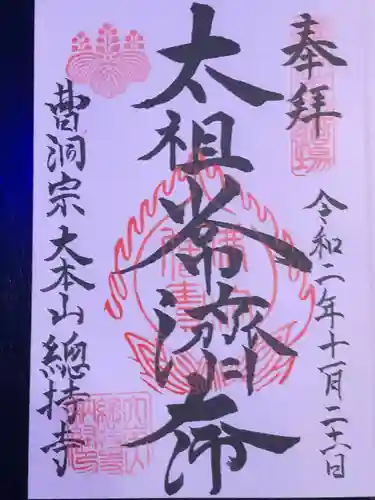 奉拝
令和二年十一月二十六日
太祖常濟大師
曹洞宗大本山總持寺